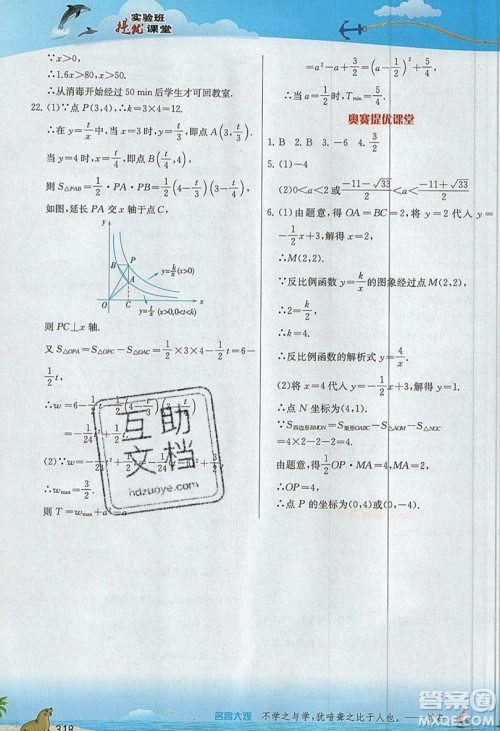 实验班
提优课堂
∵x>0,
∴1.6x>80,∴x>50.
∴从消毒开始经过 50 min 后学生才可回教室.
22. (1)∵点 P(3,4),∴k=3×4=12.
∴在 y=t/x 中,当 x=3 时,y=t/3,即点 A(3,t/3).
∴在 y=t/x 中,当 y=4 时,x=t/4,即点 B(t/4,4).
则 S△PAB=1/2·PA·PB=1/2(4-t/3)(3-t/4).
如图,延长 PA 交 x 轴于点 C,
y
B
P
A
y=k/x(x>0)
O
C
x
y=t/x(x>0,0<t<k)
则 PC⊥x 轴.
又 S△OPA=S△OPC-S△OAC=1/2×3×4-1/2t=6-
1/2t,
∴w=6-1/2t-1/2(4-t/3)(3-t/4)
(2)∵w=-1/24t²+1/2t
∴wmax=3/2.
则 T=wmax+a²-a
=a²-a+3/2=(a-1/2)²+5/4,
∴当 a=1/2 时,Tmin=5/4.
奥赛提优课堂
1. B 2. B 3. -6 4. 3/2
5. (1)-4
(2)0<a<2 或 (-11-√33)/2<a<(-11+√33)/2
6. (1)由题意,得 OA=BC=2,将 y=2 代入 y=
-1/2x+3,解得 x=2,
∴M(2,2).
∵反比例函数 y=k/x 的图象经过点 M(2,2),
∴2=k/2,
∴k=4.
∴反比例函数的解析式 y=4/x.
(2)将 x=4 代入 y=-1/2x+3,得 y=1,
∴点 N 坐标为(4,1).
∵S四边形BMON=S矩形OABC-S△AOM-S△NOC
=4×2-2-2=4.
由题意,得 1/2OP·MA=4,MA=2,
∴OP=4.
∴点 P 的坐标为(0,4)或(0,-4).
互助
文档
hdzuoye.com
318
名言大观 不学之与学,犹喑聋之比于人也。
作业